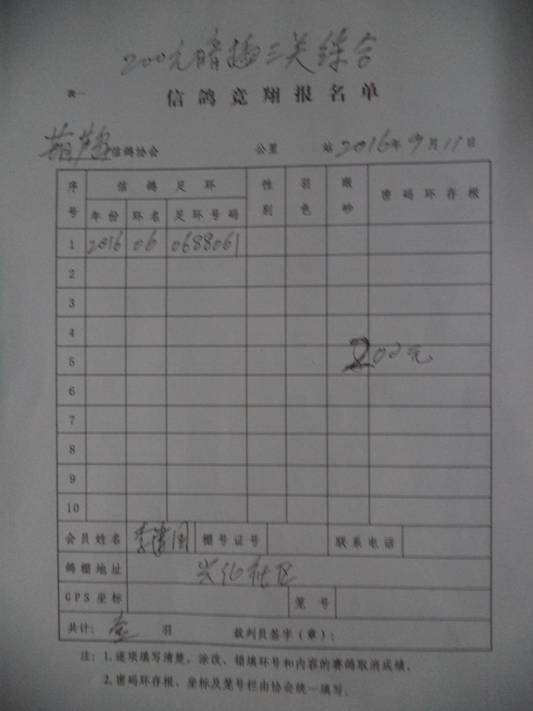 200元暗插三关综合
表一
信鸽竞翔报名单
葫芦岛信鸽协会 公里 站2016年9月11日
序号 信鸽足环 性别 羽色 眼砂 密码环存根
年份 环名 足环号码
1 2016 06 0688061
2
3
4
5 200元
6
7
8
9
10
会员姓名 李 国 棚号证号 联系电话
鸽棚地址 兴化社区
GPS坐标 笼号
共计: 羽 裁判员签字(章):
注: 1.逐项填写清楚、涂改、错填环号和内容的赛鸽取消成绩。
2.密码环存根、坐标及笼号栏由协会统一填写。